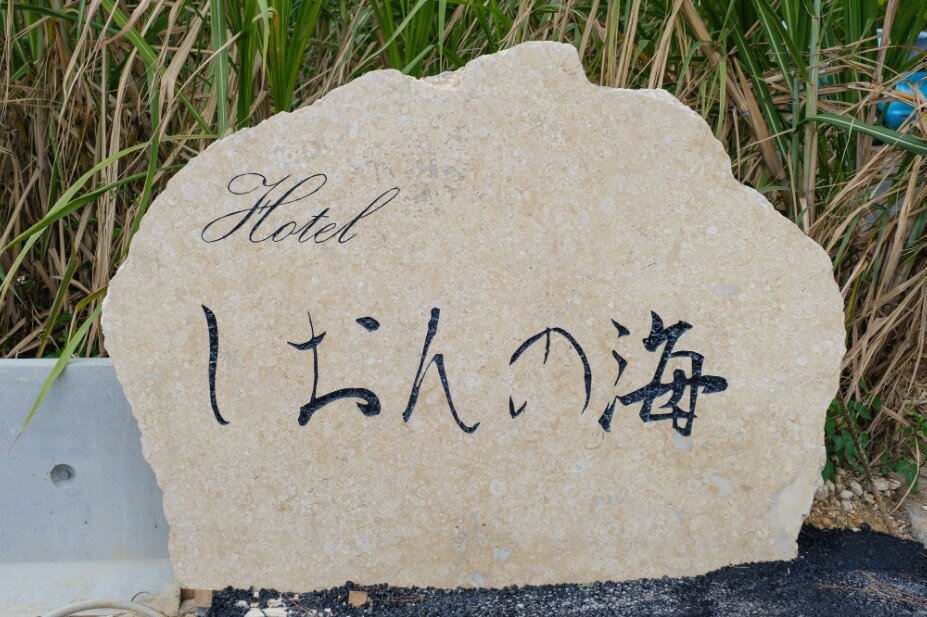 Hotel
しおんの海